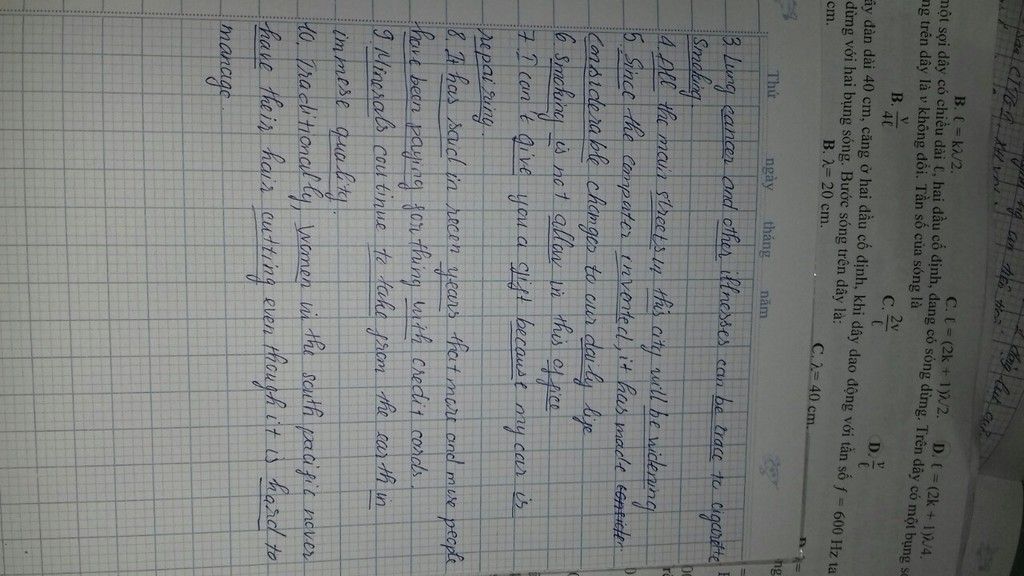 B. ℓ = kλ/2.
C. ℓ = (2k + 1)λ/2.
D. ℓ = (2k + 1)λ/4.
một sợi dây có chiều dài ℓ, hai đầu cố định, đang có sóng dừng. Trên dây có một bụng
ng trên dây là v không đổi. Tần số của sóng là
B. v/4ℓ
C. 2v/ℓ
D. v/ℓ
ây đàn dài 40 cm, căng ở hai đầu cố định, khi dây dao động với tần số f = 600 Hz ta
dừng với hai bụng sóng. Bước sóng trên dây là:
cm.
B. λ = 20 cm.
C. λ = 40 cm.
Thứ ngày tháng năm
3 Lung cancer and other illnesses can be trace to cigarette
Smoking
4 All the main streets in this city will be widening
5 Since the computer invented, it has made consider
considerable changes to our daily life
6 Smoking is not allow in this office
7. I can't give you a gift because my car is
repairing.
8. It has said in recen years that more and more people
have been paying for thing with credit cards.
9 Minerals continue to take from the earth in
immese quality.
10. Traditionally, women in the south pacific never
have their hair cutting even though it is hard to
manage.